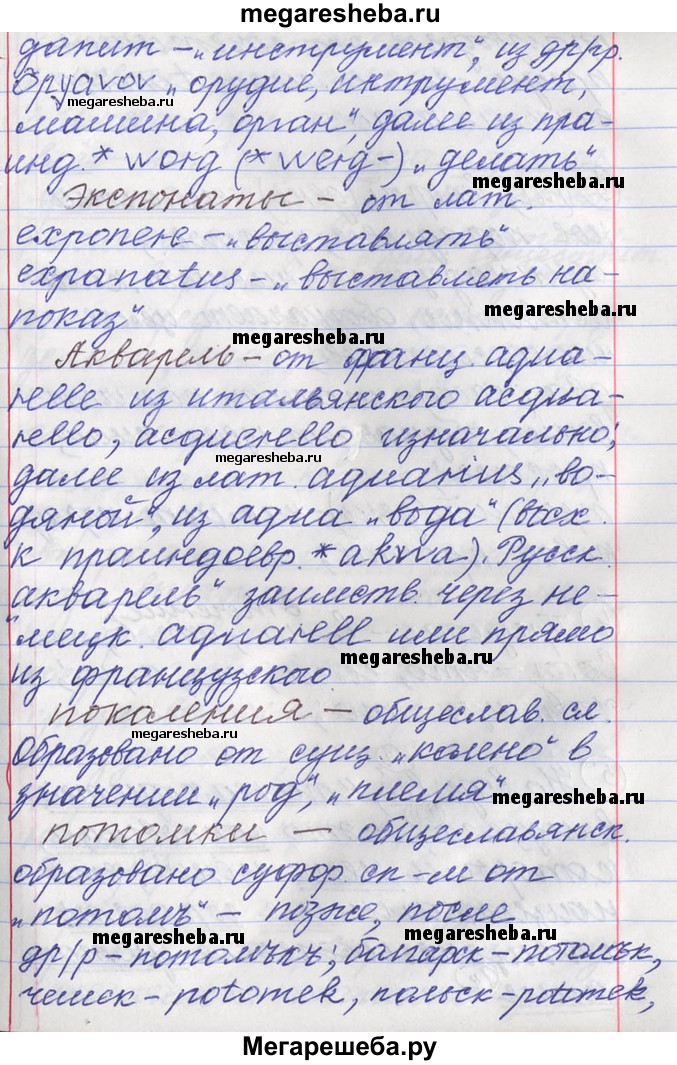 megaresheba.ru
дапит – „инструмент“, из др/гр.
όργανον „орудие, интрумент,
megaresheba.ru
машина, орган“, далее из пра-
инд. *worg (*werg-) „делать“
megaresheba.ru
Экспонаты – от лат.
exponere – „выставлять“
expanatus – „выставлять на-
megaresheba.ru
показ“
megaresheba.ru
Акварель – от франц. aqua-
relle из итальянского acqua-
rello, acquerello изначально;
megaresheba.ru
далее из лат. aquarius „во-
дяной“, из aqua „вода“ (восх.
к праиндоевр. *akwa). Русск.
„акварель“ заимств. через не-
мецк. aquarell или прямо
megaresheba.ru
из французского
поколения – общеслав. сл.
megaresheba.ru
Образовано от сущ. „колено“ в
значении „род“, „племя“
megaresheba.ru
потомки – общеславянск.
образовано суф. сп-м от
„потомъ“ – позже, после
megaresheba.ru
megaresheba.ru
др/р – потомъкъ; болгарск – потомък,
чешск – potomek, польск – potomek,
Мегарешеба.ру